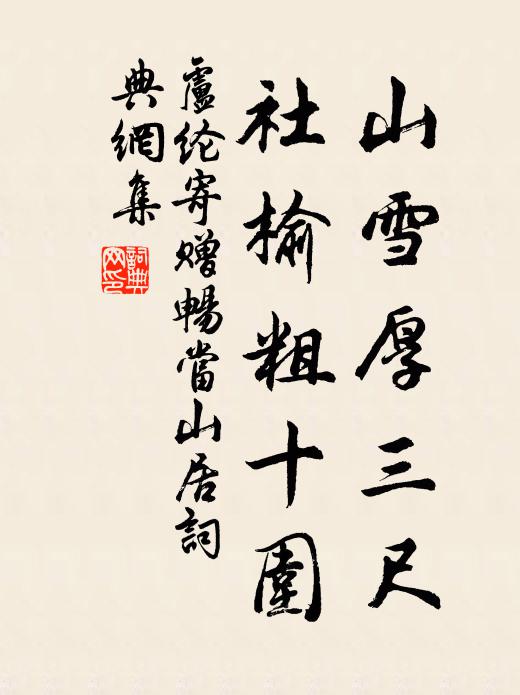 山雪厚三尺
社榆粗十圍
盧纶寄赠暢當山居詞
典網集
詞典
网印